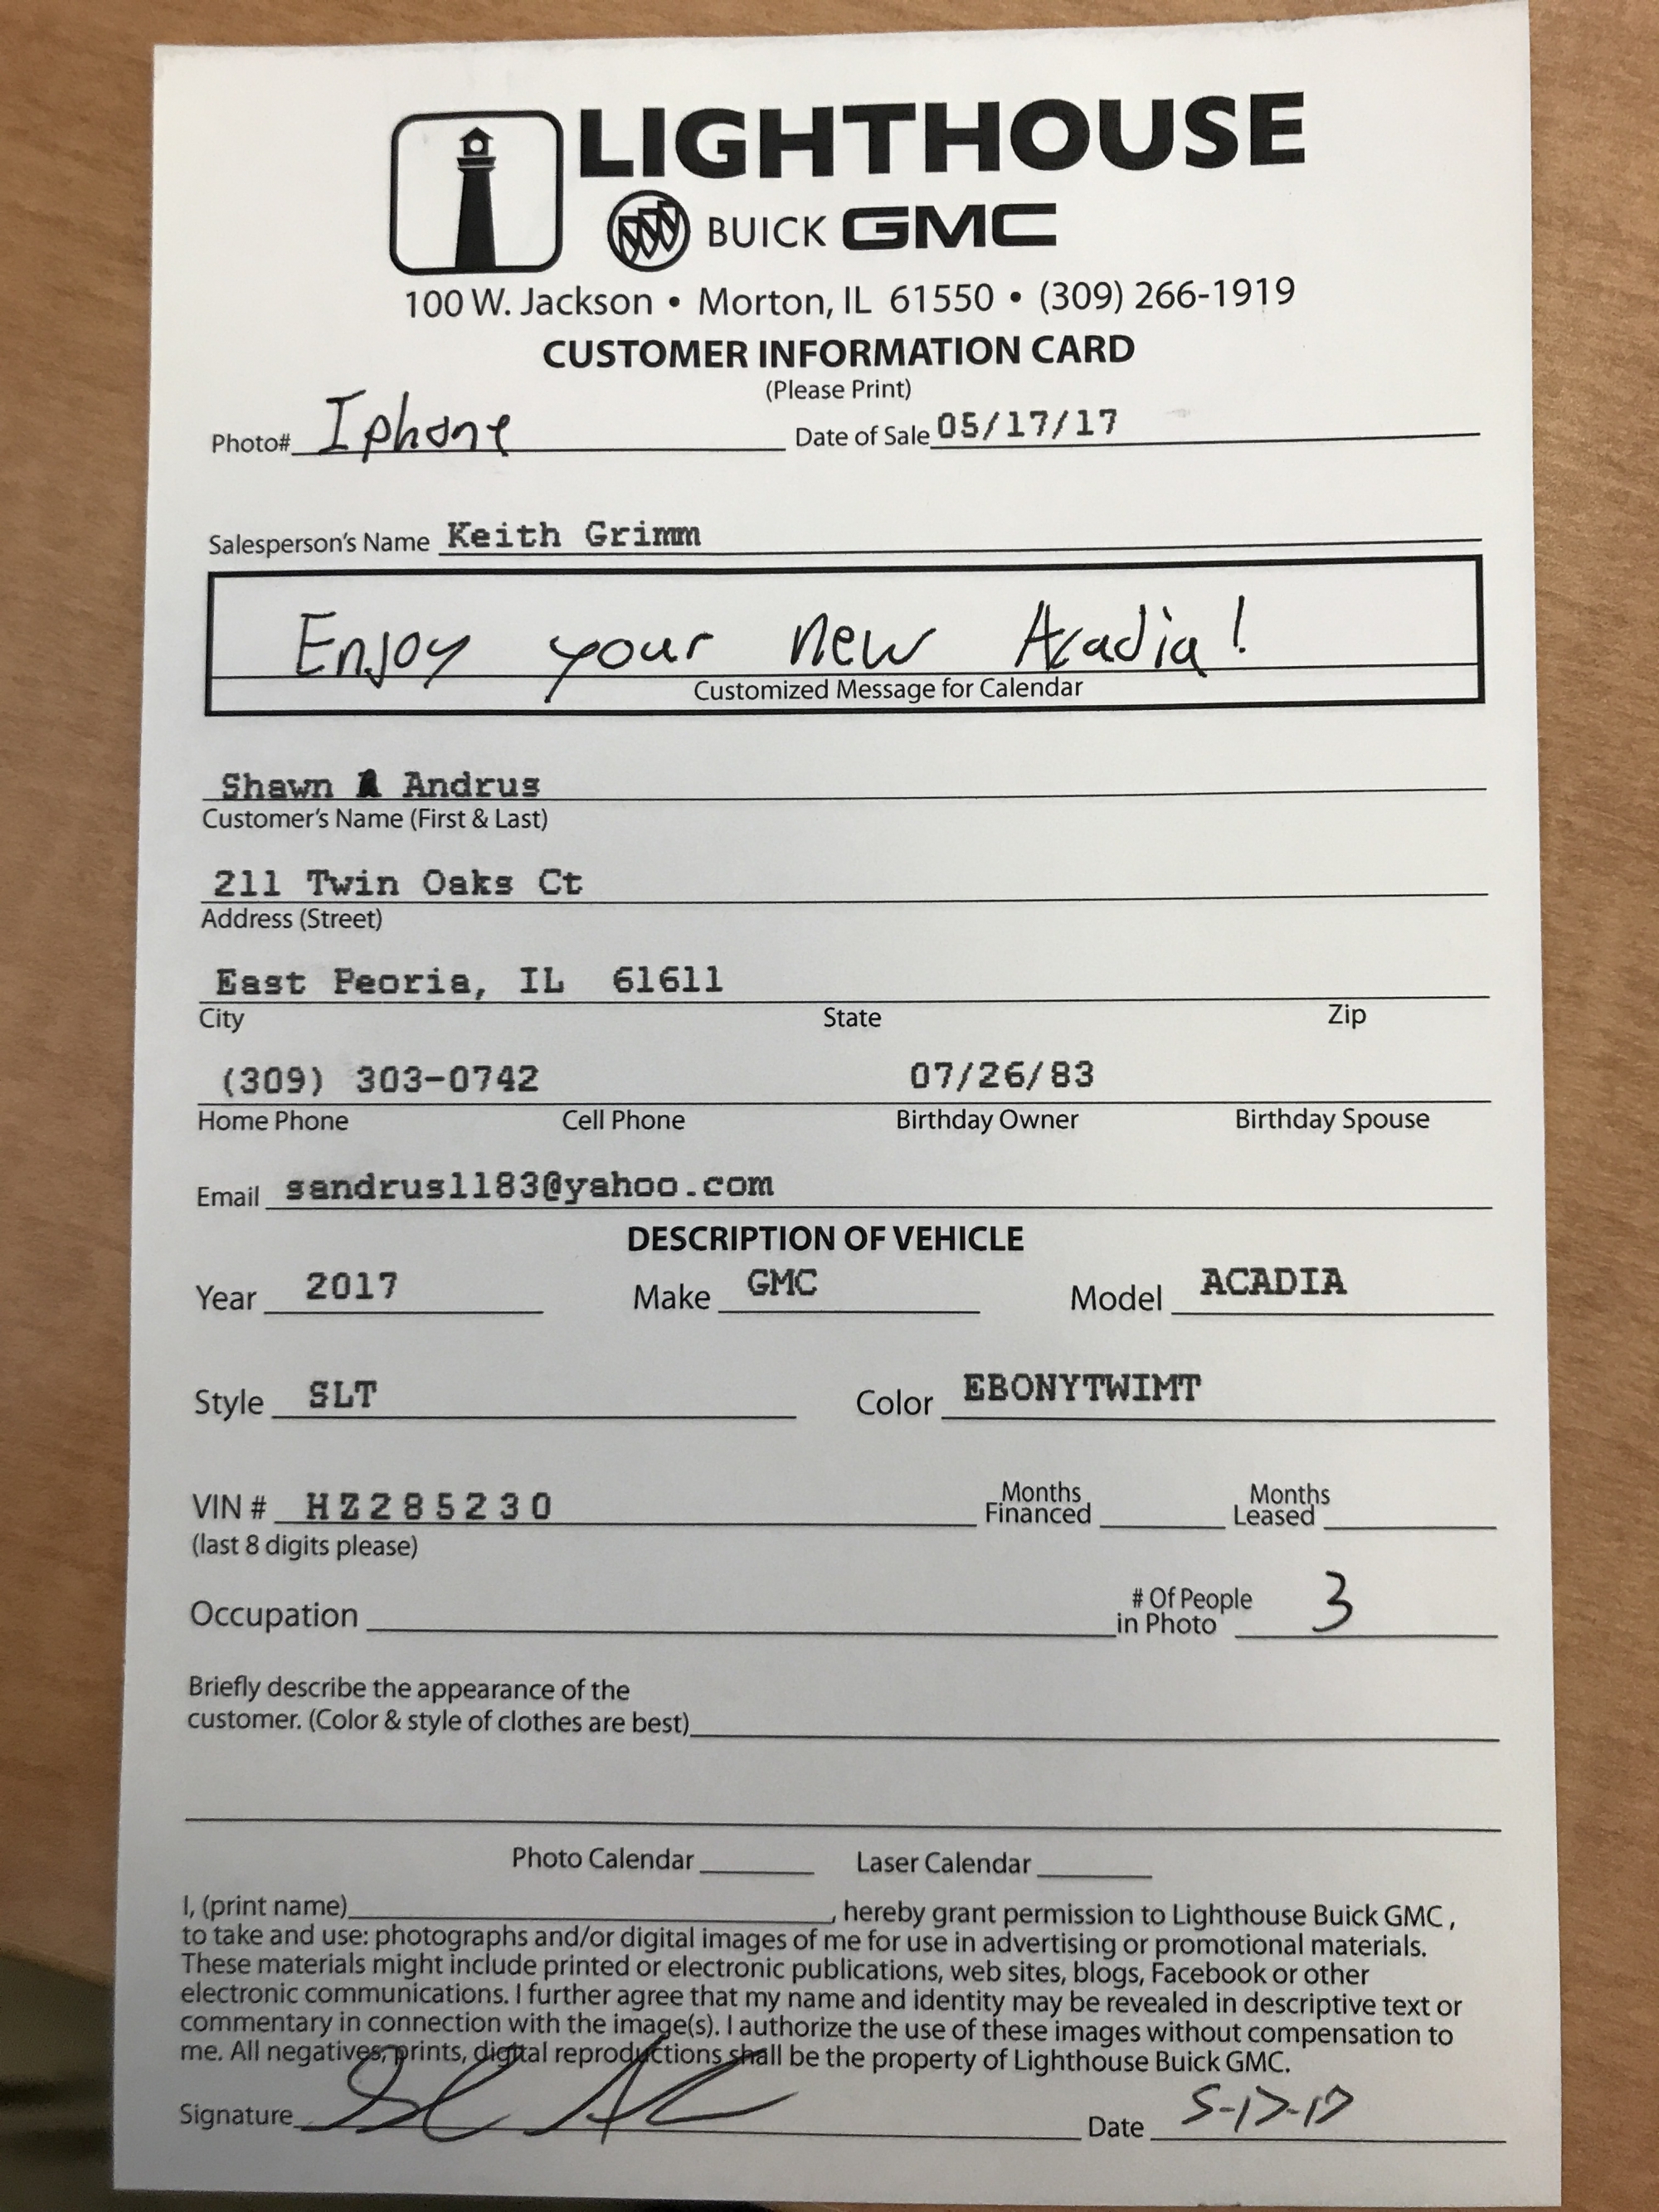 LIGHTHOUSE
BUICK GMC
100 W. Jackson • Morton, IL 61550 • (309) 266-1919
CUSTOMER INFORMATION CARD
(Please Print)
Photo# Iphone Date of Sale 05/17/17
Salesperson's Name Keith Grimm
Enjoy your new Acadia!
Customized Message for Calendar
Shawn Andrus
Customer's Name (First & Last)
211 Twin Oaks Ct
Address (Street)
East Peoria, IL 61611
City State Zip
(309) 303-0742 07/26/83
Home Phone Cell Phone Birthday Owner Birthday Spouse
Email sandrus1183@yahoo.com
DESCRIPTION OF VEHICLE
Year 2017 Make GMC Model ACADIA
Style SLT Color EBONYTWIMT
VIN # HZ285230 Months Financed Months Leased
(last 8 digits please)
Occupation # Of People in Photo 3
Briefly describe the appearance of the
customer. (Color & style of clothes are best)
Photo Calendar Laser Calendar
I, (print name) , hereby grant permission to Lighthouse Buick GMC ,
to take and use: photographs and/or digital images of me for use in advertising or promotional materials.
These materials might include printed or electronic publications, web sites, blogs, Facebook or other
electronic communications. I further agree that my name and identity may be revealed in descriptive text or
commentary in connection with the image(s). I authorize the use of these images without compensation to
me. All negatives, prints, digital reproductions shall be the property of Lighthouse Buick GMC.
Signature Date 5-17-17